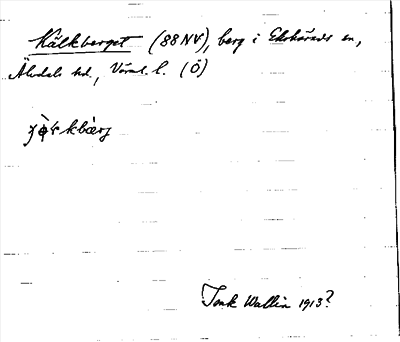 Kälkberget (88NV), berg i Ekshärads sn,
Älvdals hd., Värml. l. (Ö)
kbærj
Tonk Wallin 1913?